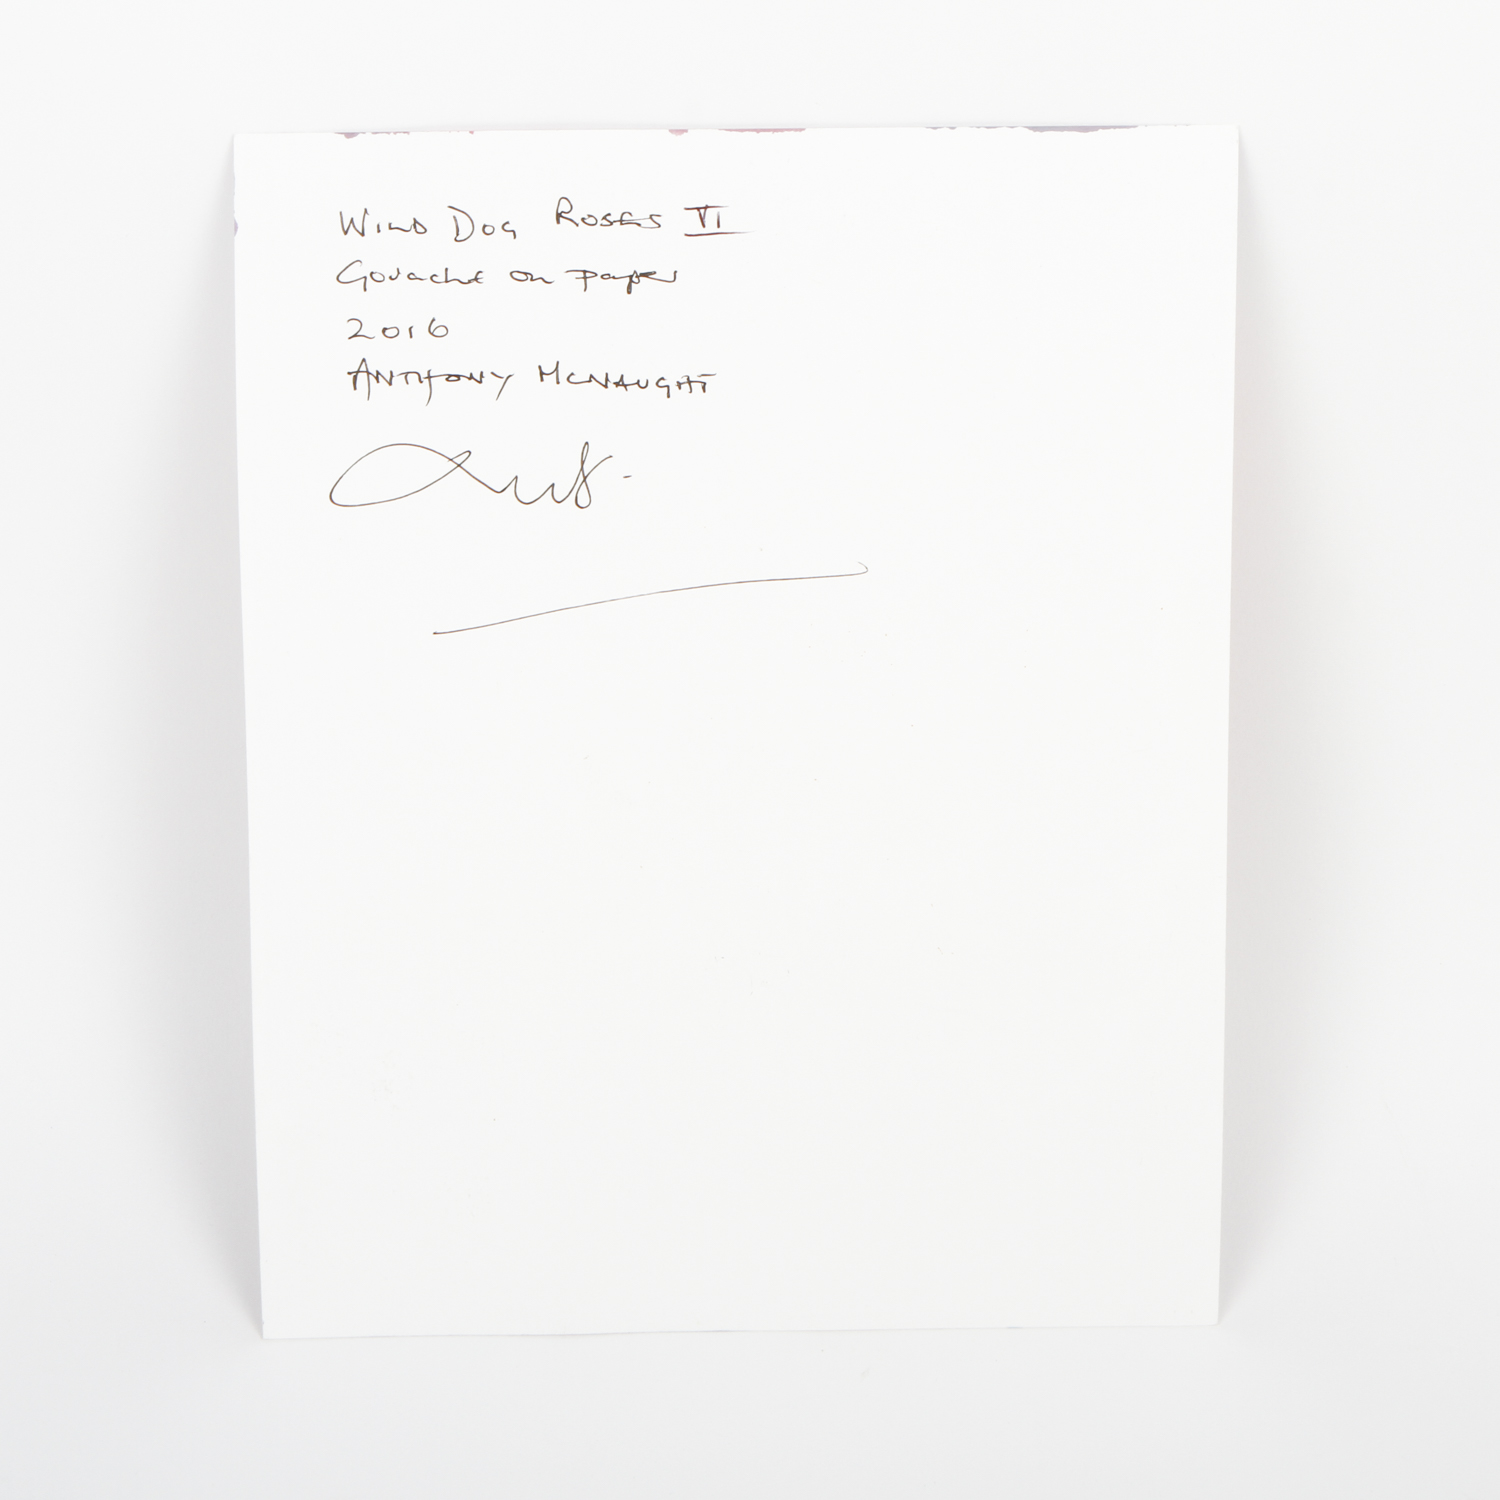 WILD DOG ROSES VI
Gouache on paper
2016
ANTHONY MCNAUGHT